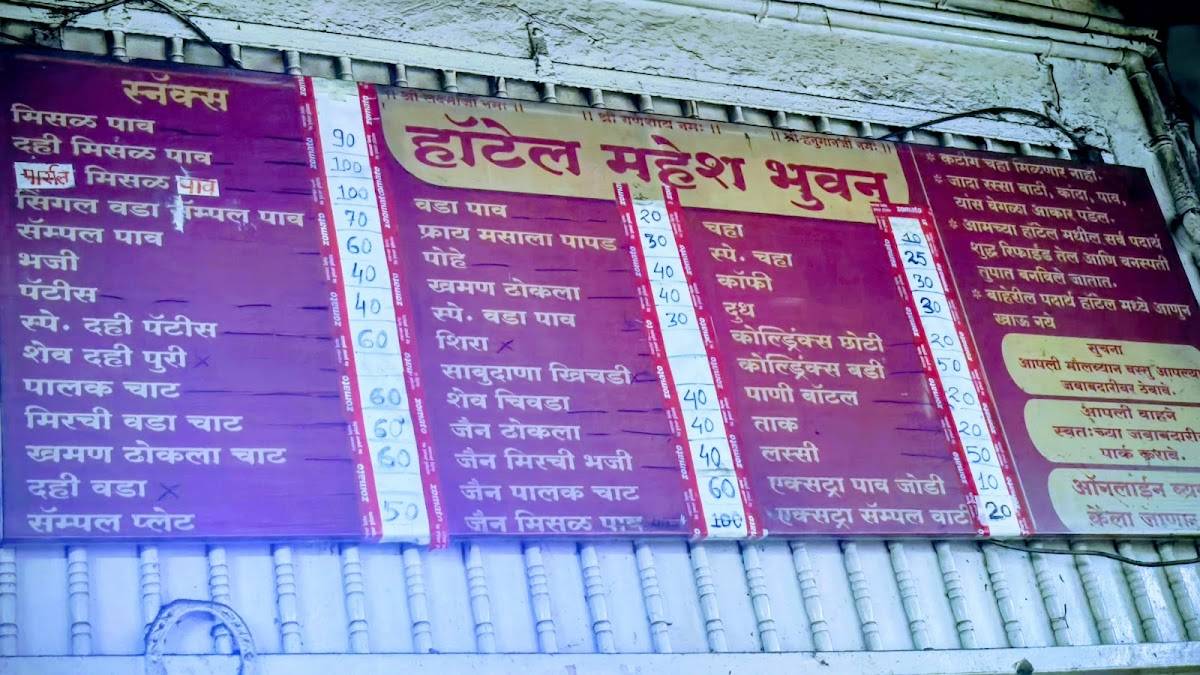 || श्री लक्ष्मीजी नमः ||
|| श्री गणेशाय नमः ||
|| श्री हनुमानजी नमः ||
हॉटेल महेश भुवन
स्नॅक्स
मिसळ पाव 90
दही मिसळ पाव 100
पार्सल मिसळ पाव 100
सिंगल वडा सॅम्पल पाव 70
सॅम्पल पाव 60
भजी 40
पॅटीस 40
स्पे. दही पॅटीस 60
शेव दही पुरी ×
पालक चाट 60
मिरची वडा चाट 60
खमण ढोकला चाट 60
दही वडा ×
सॅम्पल प्लेट 50
वडा पाव 20
फ्राय मसाला पापड 30
पोहे 40
खमण ढोकला 40
स्पे. वडा पाव 30
शिरा ×
साबुदाणा खिचडी
शेव चिवडा 40
जैन ढोकला 40
जैन मिरची भजी 40
जैन पालक चाट 60
जैन मिसळ पाव 100
चहा 10
स्पे. चहा 25
कॉफी 30
दुध 30
कोल्ड्रिंक्स छोटी 20
कोल्ड्रिंक्स बडी 50
पाणी बॉटल 20
ताक 20
लस्सी 50
एक्सट्रा पाव जोडी 10
एक्सट्रा सॅम्पल वाटी 20
* कटींग चहा मिळणार नाही.
* जादा रस्सा वाटी, कांदा, पाव,
यांस वेगळा आकार पडेल.
* आमच्या हॉटेल मधील सर्व पदार्थ
शुद्ध रिफाईंड तेल आणि वनस्पती
तुपात बनविले जातात.
* बाहेरील पदार्थ हॉटेल मध्ये आणून
खाऊ नये
सुचना
आपली मौल्यवान वस्तू आपल्या
जबाबदारीवर ठेवावे.
आपली वाहने
स्वतःच्या जबाबदारी
पार्क करावे.
ऑनलाईन
केला जाणार